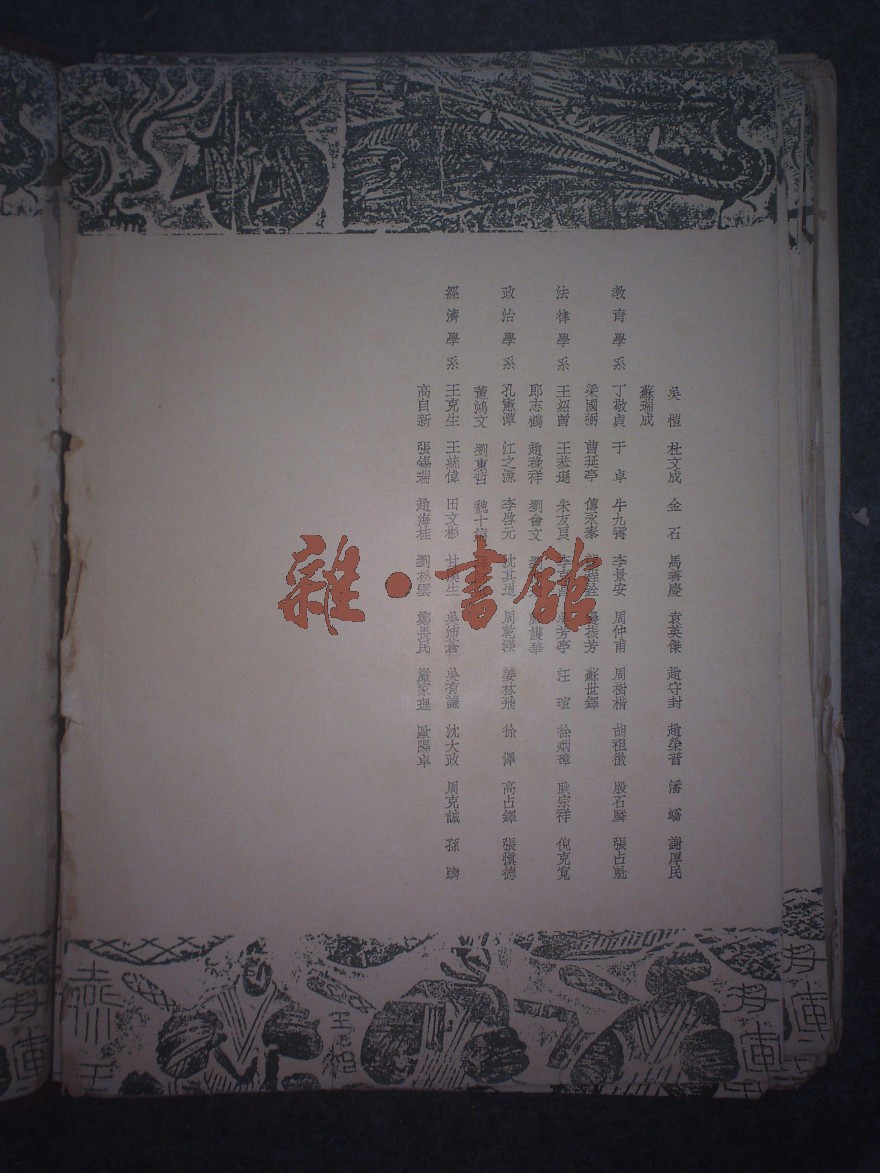 吳愷 杜文成 金石 馬善慶 袁英傑 趙守封 趙榮普 潘蟠 謝厚民
蘇瑞成
教育學系 丁敬貞 于卓 牛九霄 李景安 周仲甫 周樹楷 胡祖徵 殷石麟 張占魁
梁國弼 曹延亭 傅永泰 振芳 蘇世鐸
法律學系 王紹曾 王恭珽 朱友良 芳亭 汪瑄 徐炳璋 耿宗祥 倪克寬
郎志鶴 趙祿祥 劉會文
政治學系 孔憲譚 江之源 李啓元 沈其道 周乾溁 姜林飛 徐澤 高占鐸 張愼德
董鴻文 劉東哲 魏十
經濟學系 王克生 王統偉 田文彬 生 吳沛蒼 吳有謙 沈大政 周克誠 孫躋
高自新 張錫瑞 趙海桂 劉松雲 鄭畏民 嚴家理 歐陽卓
雜·書館
燕王
王相